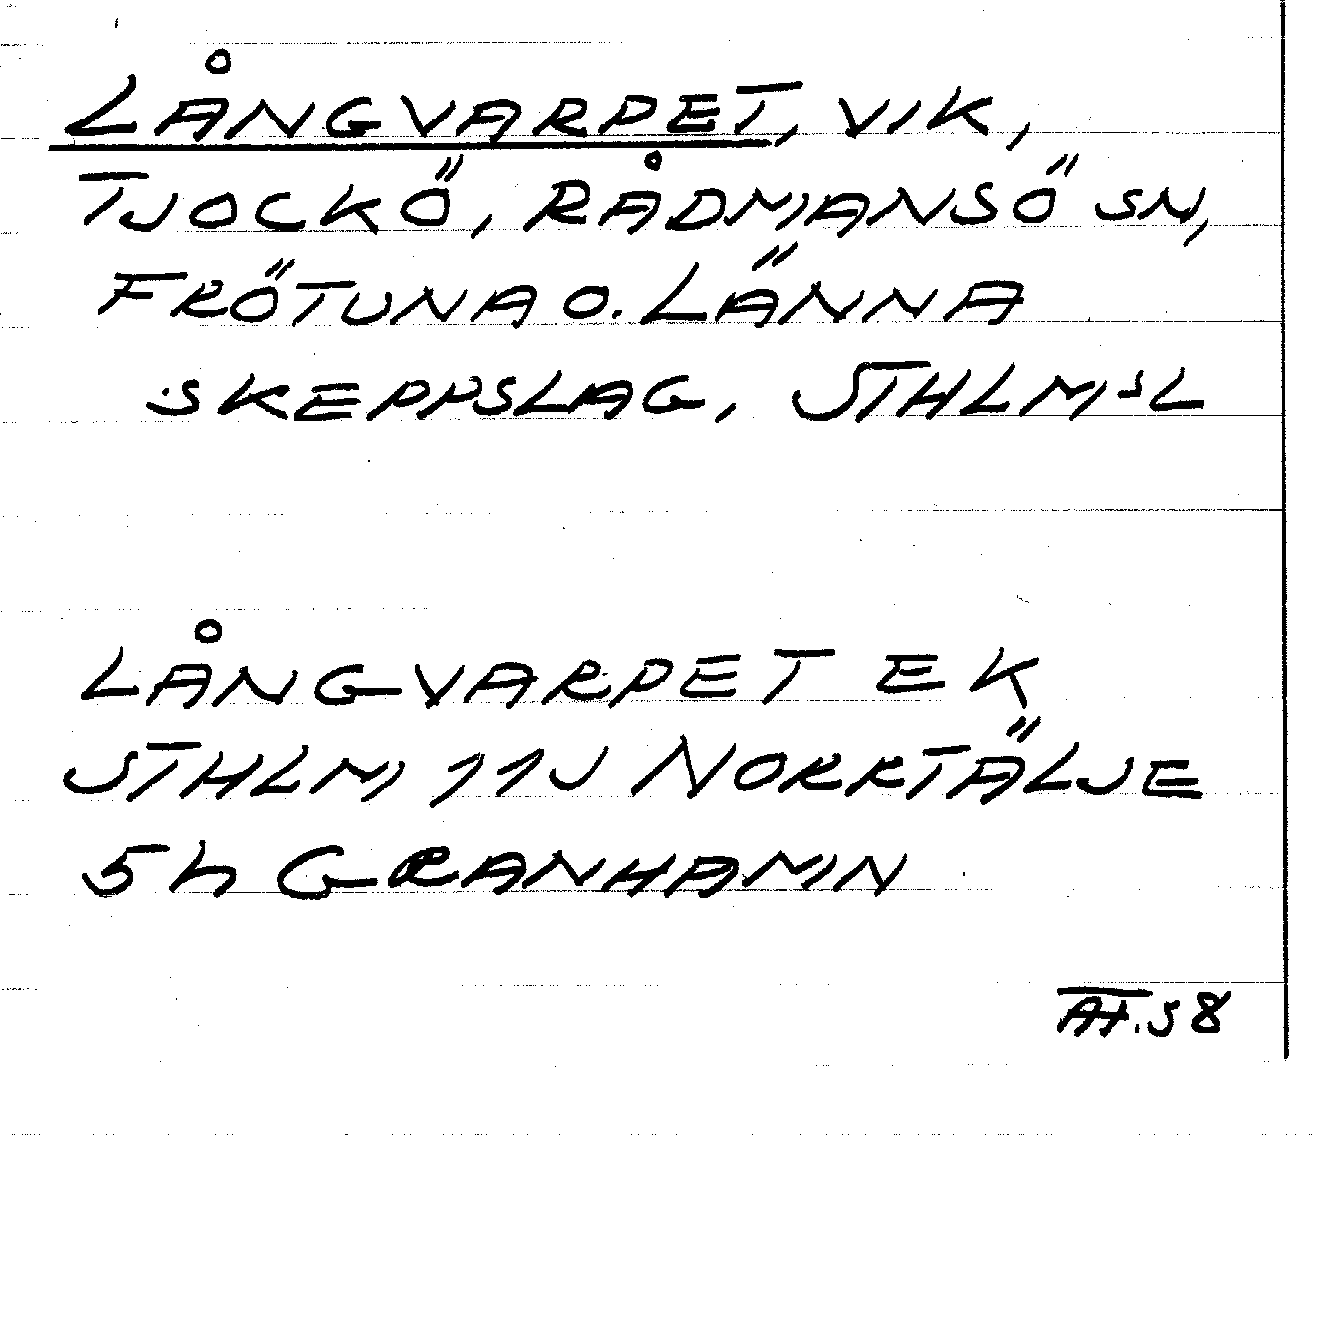 LÅNGVARPET, VIK,
TJOCKÖ, RÅDMANSÖ SN,
FRÖTUNA O. LÄNNA
SKEPPSLAG, STHLMSL
LÅNGVARPET EK
STHLM 11J NORRTÄLJE
5h GRANHAMN
AT.58